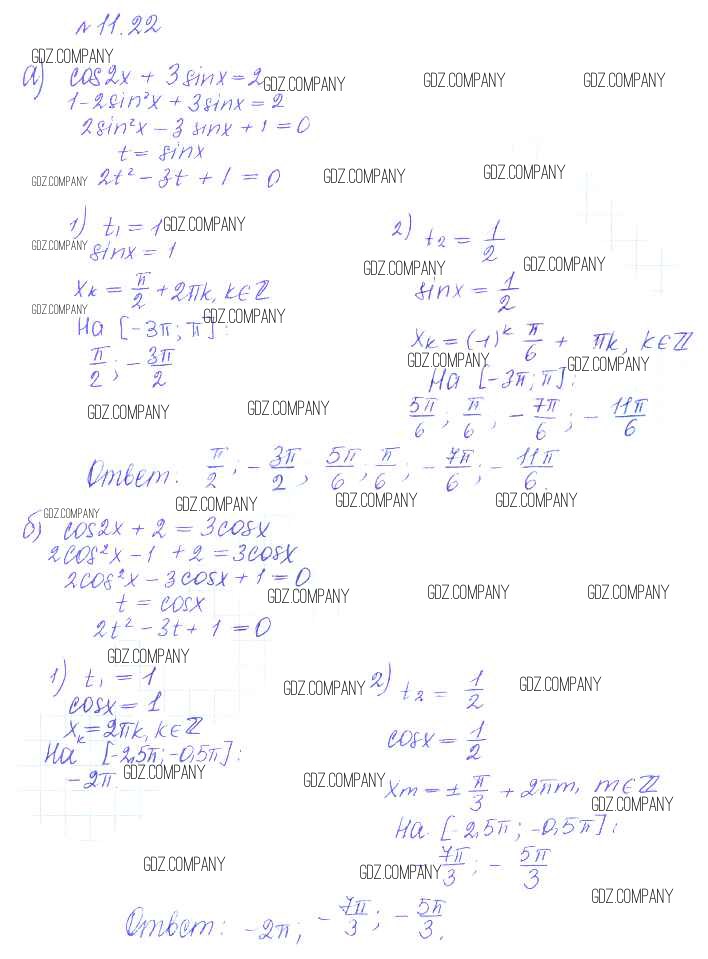 № 11.22
GDZ.COMPANY
а) cos2x + 3sinx = 2 GDZ.COMPANY GDZ.COMPANY GDZ.COMPANY
1 - 2sin²x + 3sinx = 2
2sin²x - 3sinx + 1 = 0
t = sinx
GDZ.COMPANY 2t² - 3t + 1 = 0 GDZ.COMPANY GDZ.COMPANY
1) t₁ = 1 GDZ.COMPANY
GDZ.COMPANY sinx = 1
xₖ = π/2 + 2πk, k∈ℤ
GDZ.COMPANY GDZ.COMPANY
На [-3π; π]:
π/2; -3π/2
GDZ.COMPANY GDZ.COMPANY
2) t₂ = 1/2
GDZ.COMPANY GDZ.COMPANY
sinx = 1/2
xₖ = (-1)ᵏ π/6 + πk, k∈ℤ
GDZ.COMPANY GDZ.COMPANY
На [-3π; π]:
5π/6; π/6; -7π/6; -11π/6
Ответ: π/2; -3π/2, 5π/6; π/6; -7π/6; -11π/6.
GDZ.COMPANY GDZ.COMPANY GDZ.COMPANY GDZ.COMPANY
б) cos2x + 2 = 3cosx
2cos²x - 1 + 2 = 3cosx
2cos²x - 3cosx + 1 = 0
GDZ.COMPANY GDZ.COMPANY GDZ.COMPANY
t = cosx
2t² - 3t + 1 = 0
GDZ.COMPANY
1) t₁ = 1
cosx = 1
xₖ = 2πk, k∈ℤ
На [-2,5π; -0,5π]:
-2π. GDZ.COMPANY
GDZ.COMPANY 2) t₂ = 1/2 GDZ.COMPANY
cosx = 1/2
GDZ.COMPANY
xm = ± π/3 + 2πm, m∈ℤ
GDZ.COMPANY
На [-2,5π; -0,5π]:
-7π/3; -5π/3
GDZ.COMPANY GDZ.COMPANY GDZ.COMPANY
Ответ: -2π; -7π/3; -5π/3.